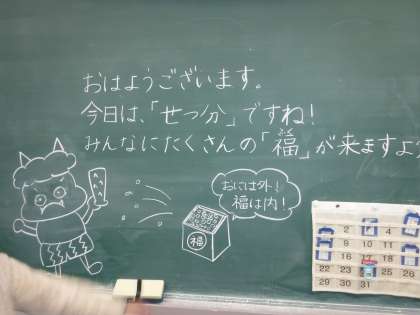 おはようございます。
今日は、「せつ分」ですね！
みんなにたくさんの「福」が来ますよ
おには外！
福は内！
福
2 4
9 10 11
16 17
22 23 24 25 26
29 30 31